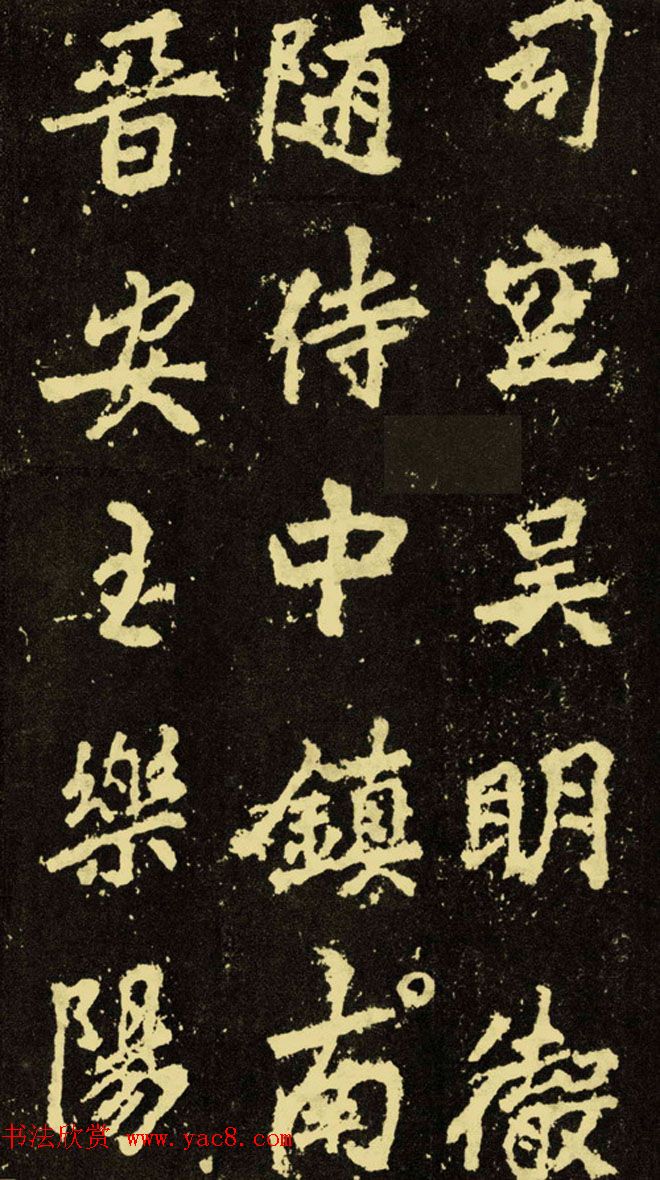 司空吴明徹
随侍中鎮南
晉安王樂陽
书法欣赏 www.yac8.com